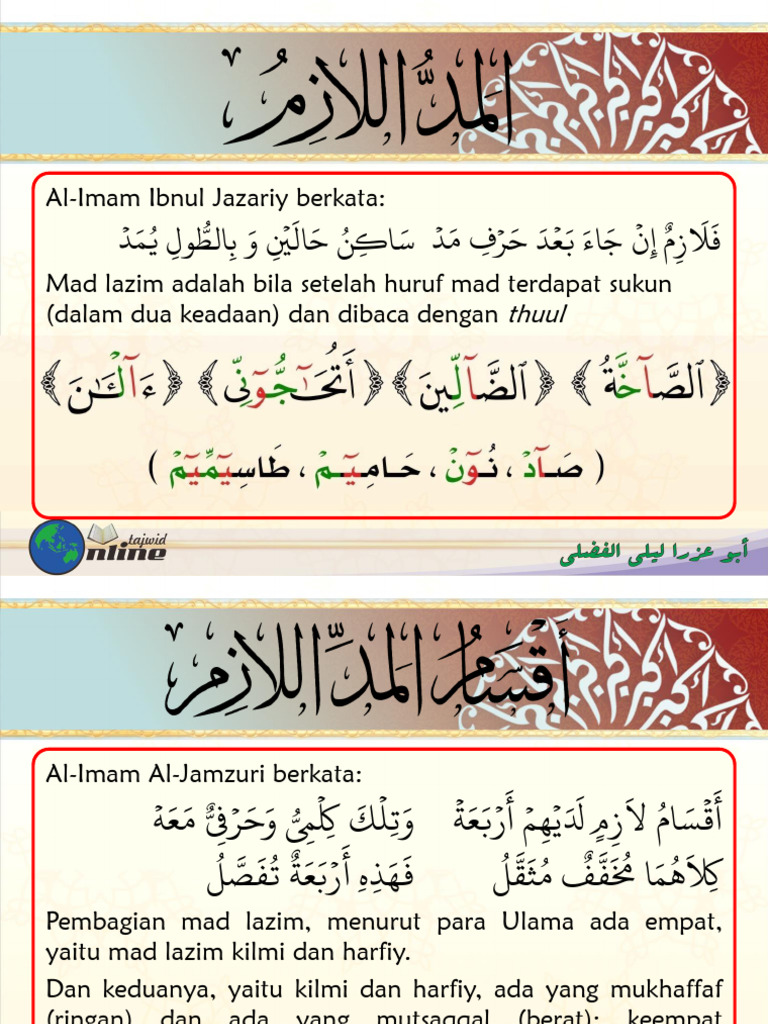 المَدُّ اللَازِمُ
Al-Imam Ibnul Jazariy berkata:
فَلَازِمٌ إِنْ جَاءَ بَعْدَ حَرْفِ مَدْ سَاكِنُ حَالَيْنِ وَ بِالطُّولِ يُمَدْ
Mad lazim adalah bila setelah huruf mad terdapat sukun
(dalam dua keadaan) dan dibaca dengan thuul
﴿ٱلصَّآخَّةُ﴾ ﴿ٱلضَّآلِّينَ﴾ ﴿أَتُحَـٰٓجُّوٓنِّى﴾ ﴿ءَآلْـَٔـٰنَ﴾
( صَـآدْ ، نُـوٓنْ ، حَـامِـيٓـمْ ، طَاسِيٓمِّيٓمْ )
tajwid
nline
أبو عزرا ليلى الفضلى
أَقْسَامُ المَدِّ اللَازِمِ
Al-Imam Al-Jamzuri berkata:
أَقْسَامُ لاَزِمٍ لَدَيْهِمْ أَرْبَعَةْ وَتِلْكَ كِلْمِيٌّ وَحَرْفِيٌّ مَعَهْ
كِلاَهُمَا مُخَفَّفٌ مُثَقَّلُ فَهَذِهِ أَرْبَعَةٌ تُفَصَّلُ
Pembagian mad lazim, menurut para Ulama ada empat,
yaitu mad lazim kilmi dan harfiy.
Dan keduanya, yaitu kilmi dan harfiy, ada yang mukhaffaf
(ringan) dan ada yang mutsaqqal (berat); keempat